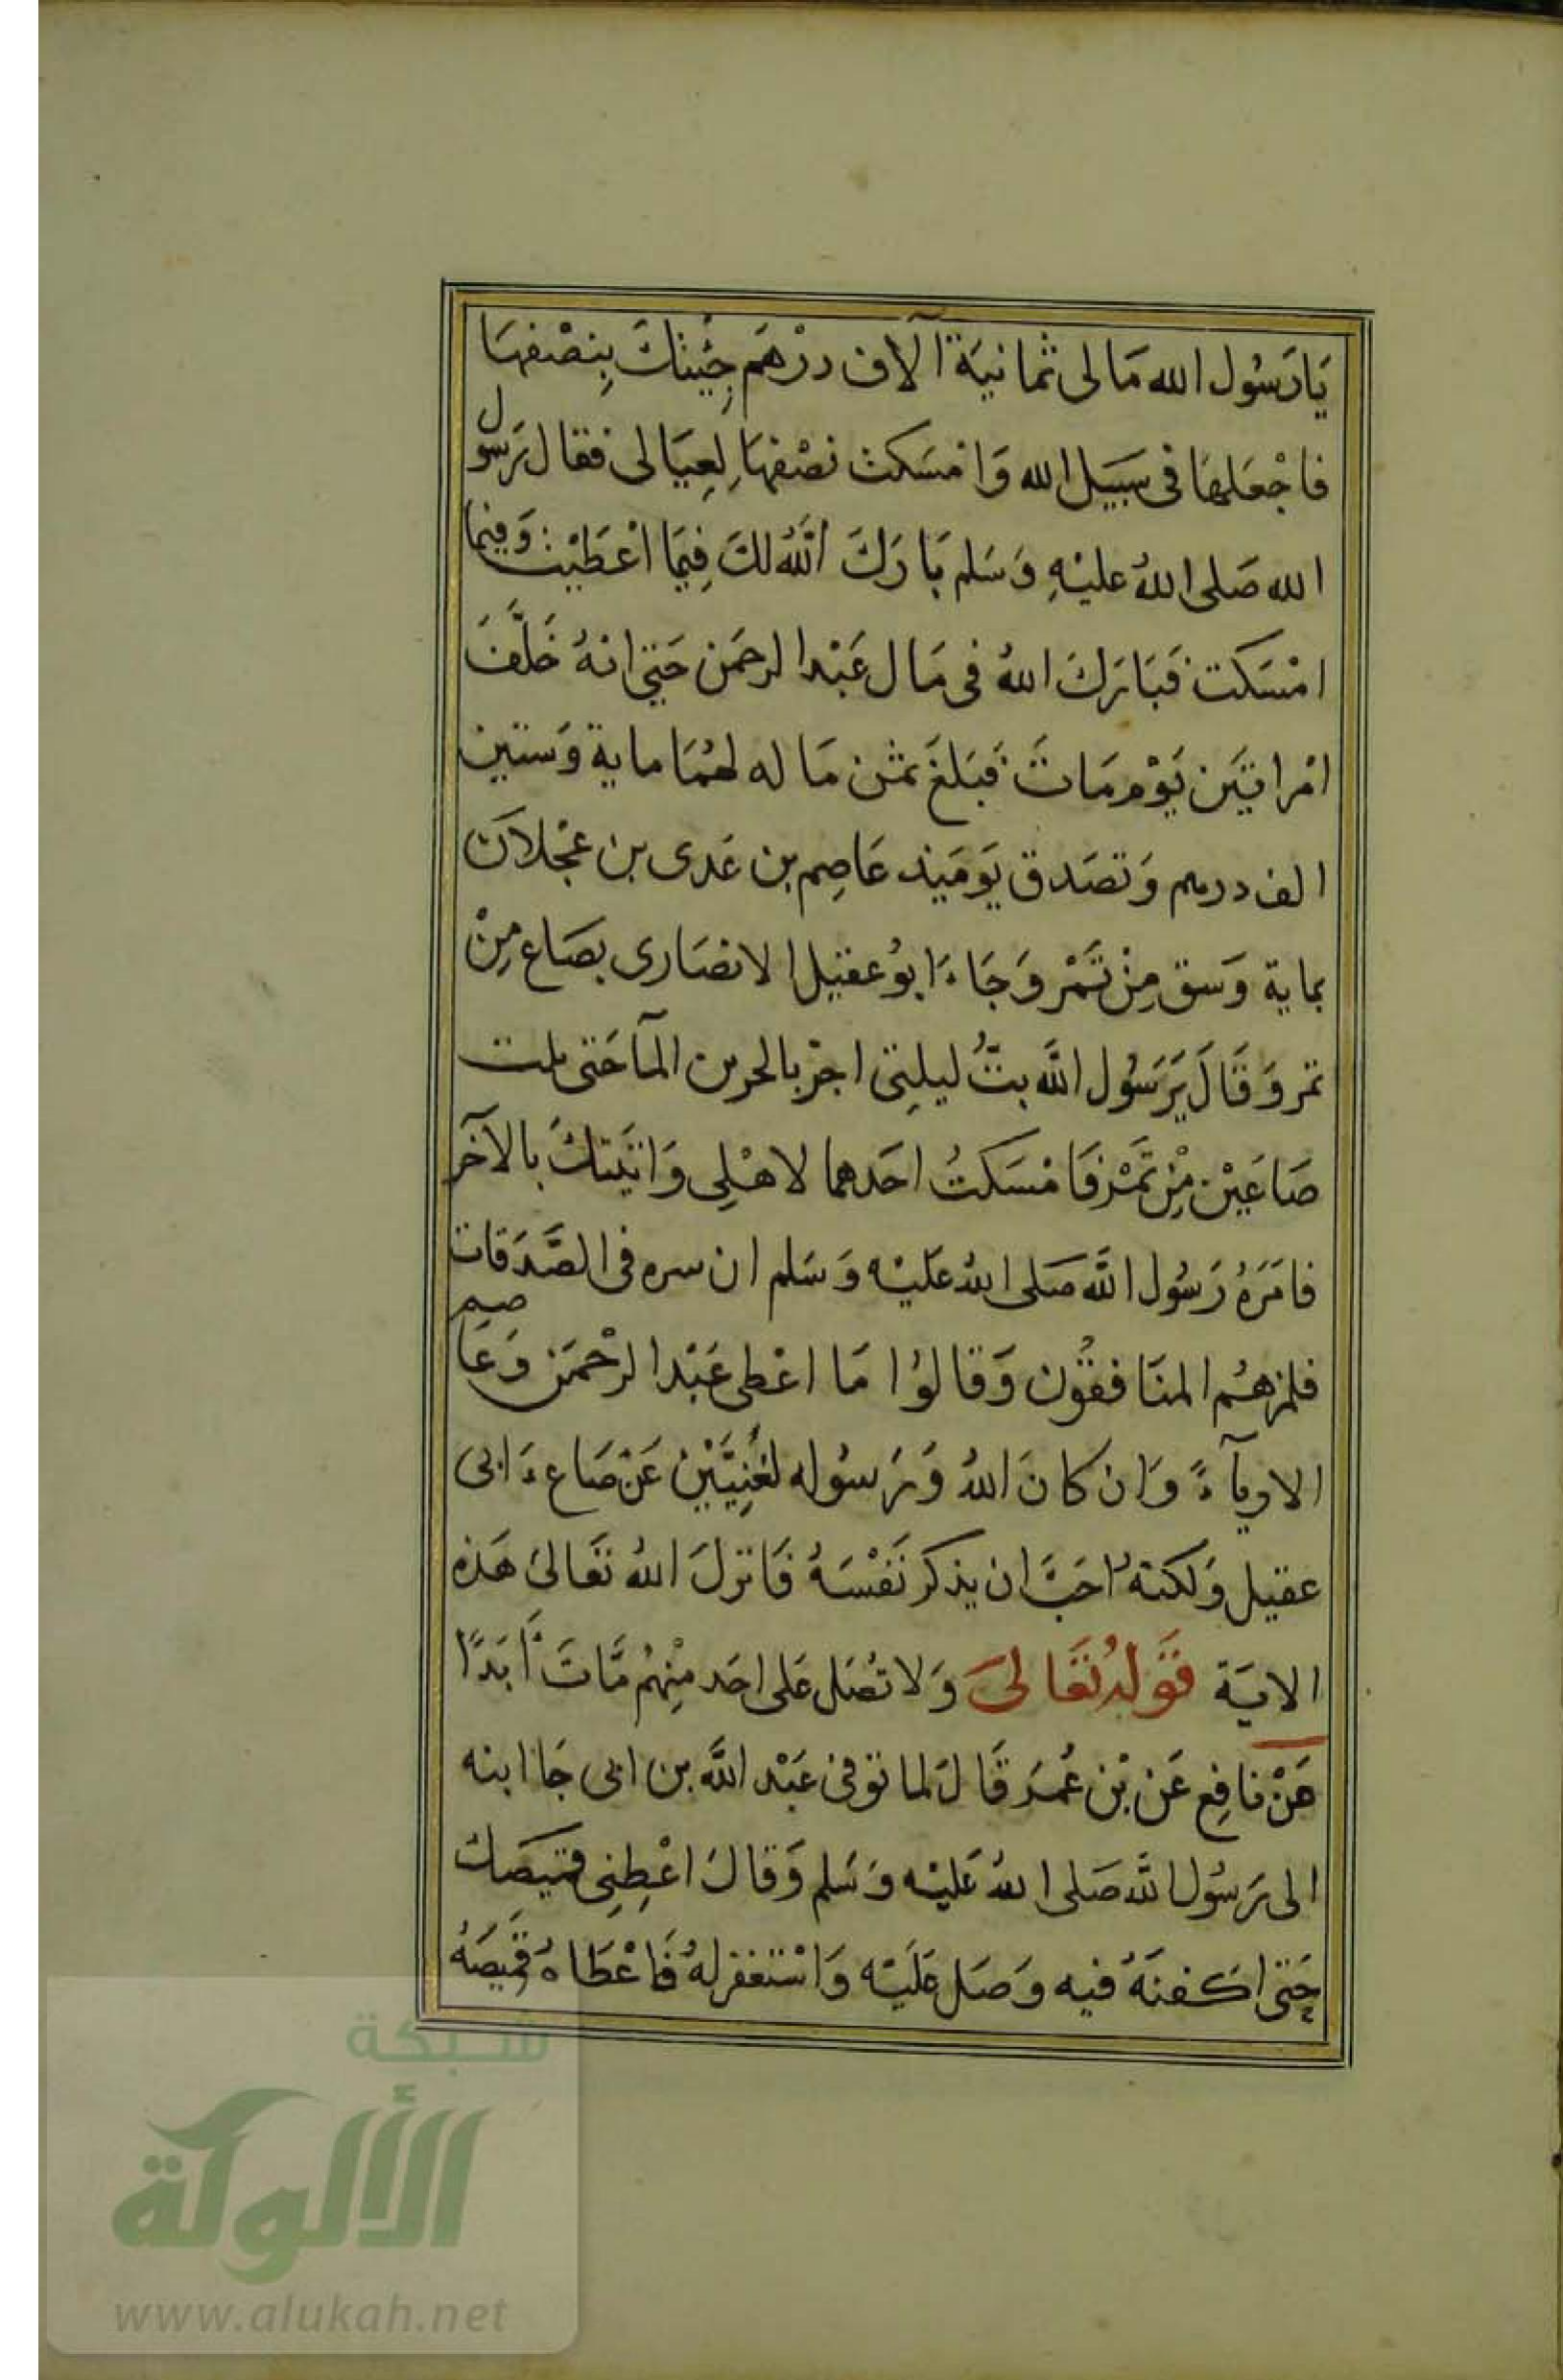 يَا رَسُول الله مَا لى ثمانيَة آلاف درْهَم جِئْيتك بِنِصْفهَا
فاجْعَلهَا فى سَبيَل الله وَامْسَكت نصْفهَا لِعِيَا لى فقال رَسول
الله صَلى اللهُ عليْهِ وَسَلم بَارَكَ اللهُ لكَ فِيمَا اعْطَيْت وَفيما
امْسَكت فَبَارَكَ اللهُ فى مَال عَبْد الرحمَن حَتي انهُ خَلَّفَ
امْراتيَن يَوْم مَاتَ فَبَلغَ ثمْن مَا له لهُمَا ماية وَستين
الف درهم وَتصَدق يَومَيذ عَاصِم بن عَدى بن عَجْلاَن
بماية وَسق مِنْ تَمْر وَجَاءَ ابوُ عقيل الانصَارى بصَاع مِنْ
تمر وَقَالَ يَرَسُول اللَّه بتُّ ليلِتى اجرْ بالجرين المآ حَتى نلت
صَاعَيْن مِنْ تَمْر فَامْسَكتُ احَدهما لاهْلِى وَاتيَتكَ بالآخَر
فامَرَهُ رَسُول اللَّه صَلى اللهُ عَليْه وَسَلم ان سره فى الصَّدَقات
فلمزهُم المنَافقوُن وَقالوُا مَا اعْطى عَبْد الرحْمَن وَعَاصم
الا ريآءً وَان كانَ اللهُ وَرَسوُله لغَنِيَّيْن عَنْ صَاعِ ابى
عقيل وَلكنهُ احَبَّ ان يذكر نَفْسَهُ فَانزلَ اللهُ تعَالىَ هَذه
الايَة قَوْلهُ تعَالىَ وَلا تصُل عَلى احَد مِنْهُم مَّاتَ أَبَدًا
عَنْ نافِع عَن بْن عُمَر قَالَ لما توفى عَبْد اللَّه بن ابى جَا ابنه
الى رَسوُل اللَّه صَلى اللهُ عَليْه وَسَلم وَقالَ اعْطِنِى قميَصَك
حَتى اكفنَهُ فيه وَصَل عَلَيْه وَاسْتغفر لهُ فَاعْطَاهُ قَمِيصَهُ
شبكة
الألوكة
www.alukah.net